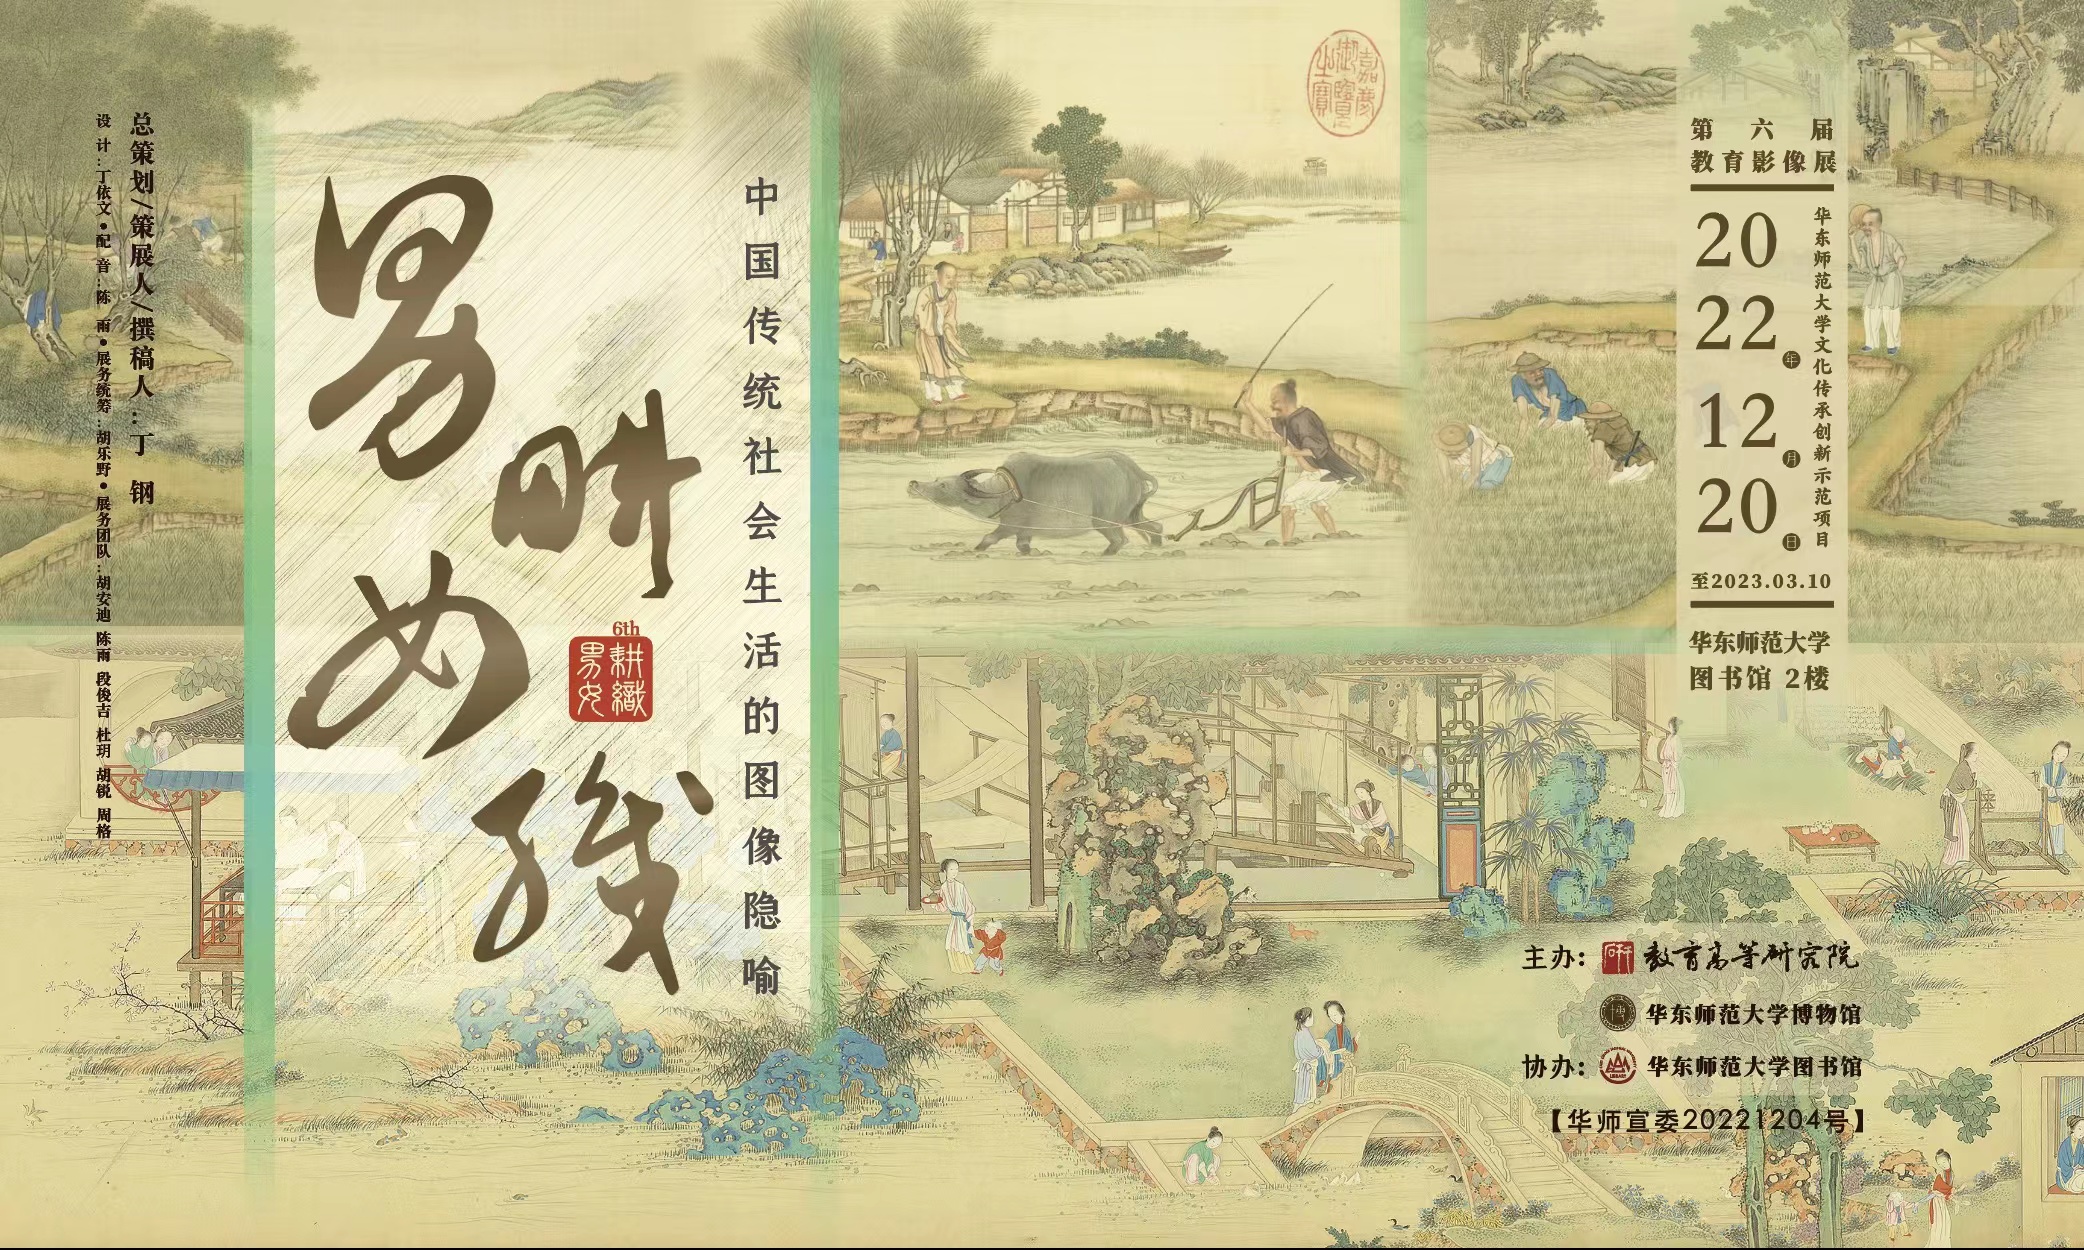 男耕女织
6th
男女耕織
中国传统社会生活的图像隐喻
总策划/策展人/撰稿人：丁 钢
设 计：丁依文●配 音：陈 雨●展务统筹：胡乐野●展务团队：胡安迪 陈雨 段俊吉 杜玥 胡锐 周格
嘉慶御覽之寶
第六届
教育影像展
2022年12月20日
华东师范大学文化传承创新示范项目
至2023.03.10
华东师范大学
图书馆 2楼
主办：教育高等研究院
华东师范大学博物馆
协办：华东师范大学图书馆
【华师宣委20221204号】